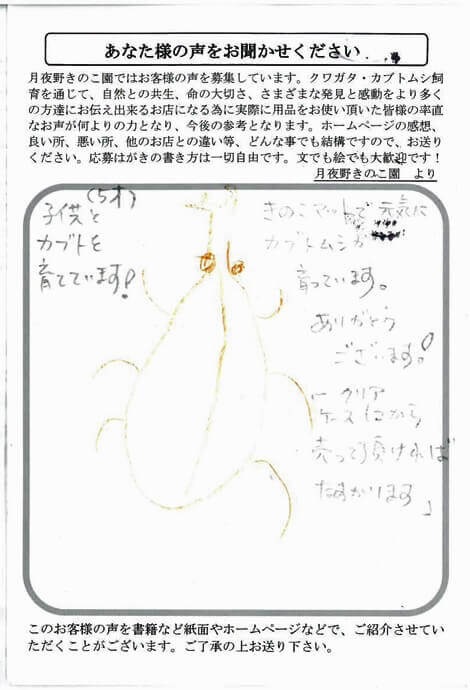 あなた様の声をお聞かせください
月夜野きのこ園ではお客様の声を募集しています。クワガタ・カブトムシ飼
育を通じて、自然との共生、命の大切さ、さまざまな発見と感動をより多く
の方達にお伝え出来るお店になる為に実際に用品をお使い頂いた皆様の率直
なお声が何よりの力となり、今後の参考となります。ホームページの感想、
良い所、悪い所、他のお店との違い等、どんな事でも結構ですので、お送り
ください。応募はがきの書き方は一切自由です。文でも絵でも大歓迎です！
月夜野きのこ園 より
(5才)
子供と
カブトを
育てています!
きのこマットで 元気に
カブトムシが
育っています。
ありがとう
ございます!
「クリア
ケース
売って頂ければ
たすかります」
このお客様の声を書籍など紙面やホームページなどで、ご紹介させてい
ただくことがございます。ご了承の上お送り下さい。